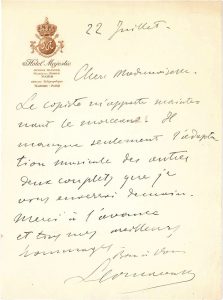 Hôtel Majestic
PARIS
22 Juillet.
Cher Mademoiselle
Le copiste m'apporte mainte
nant le morceau. Il
manque seulement l'adapta
tion musicale des autres
deux couplets que je
vous enverrai demain.
Merci à l'avance
et tous mes meilleurs
hommages